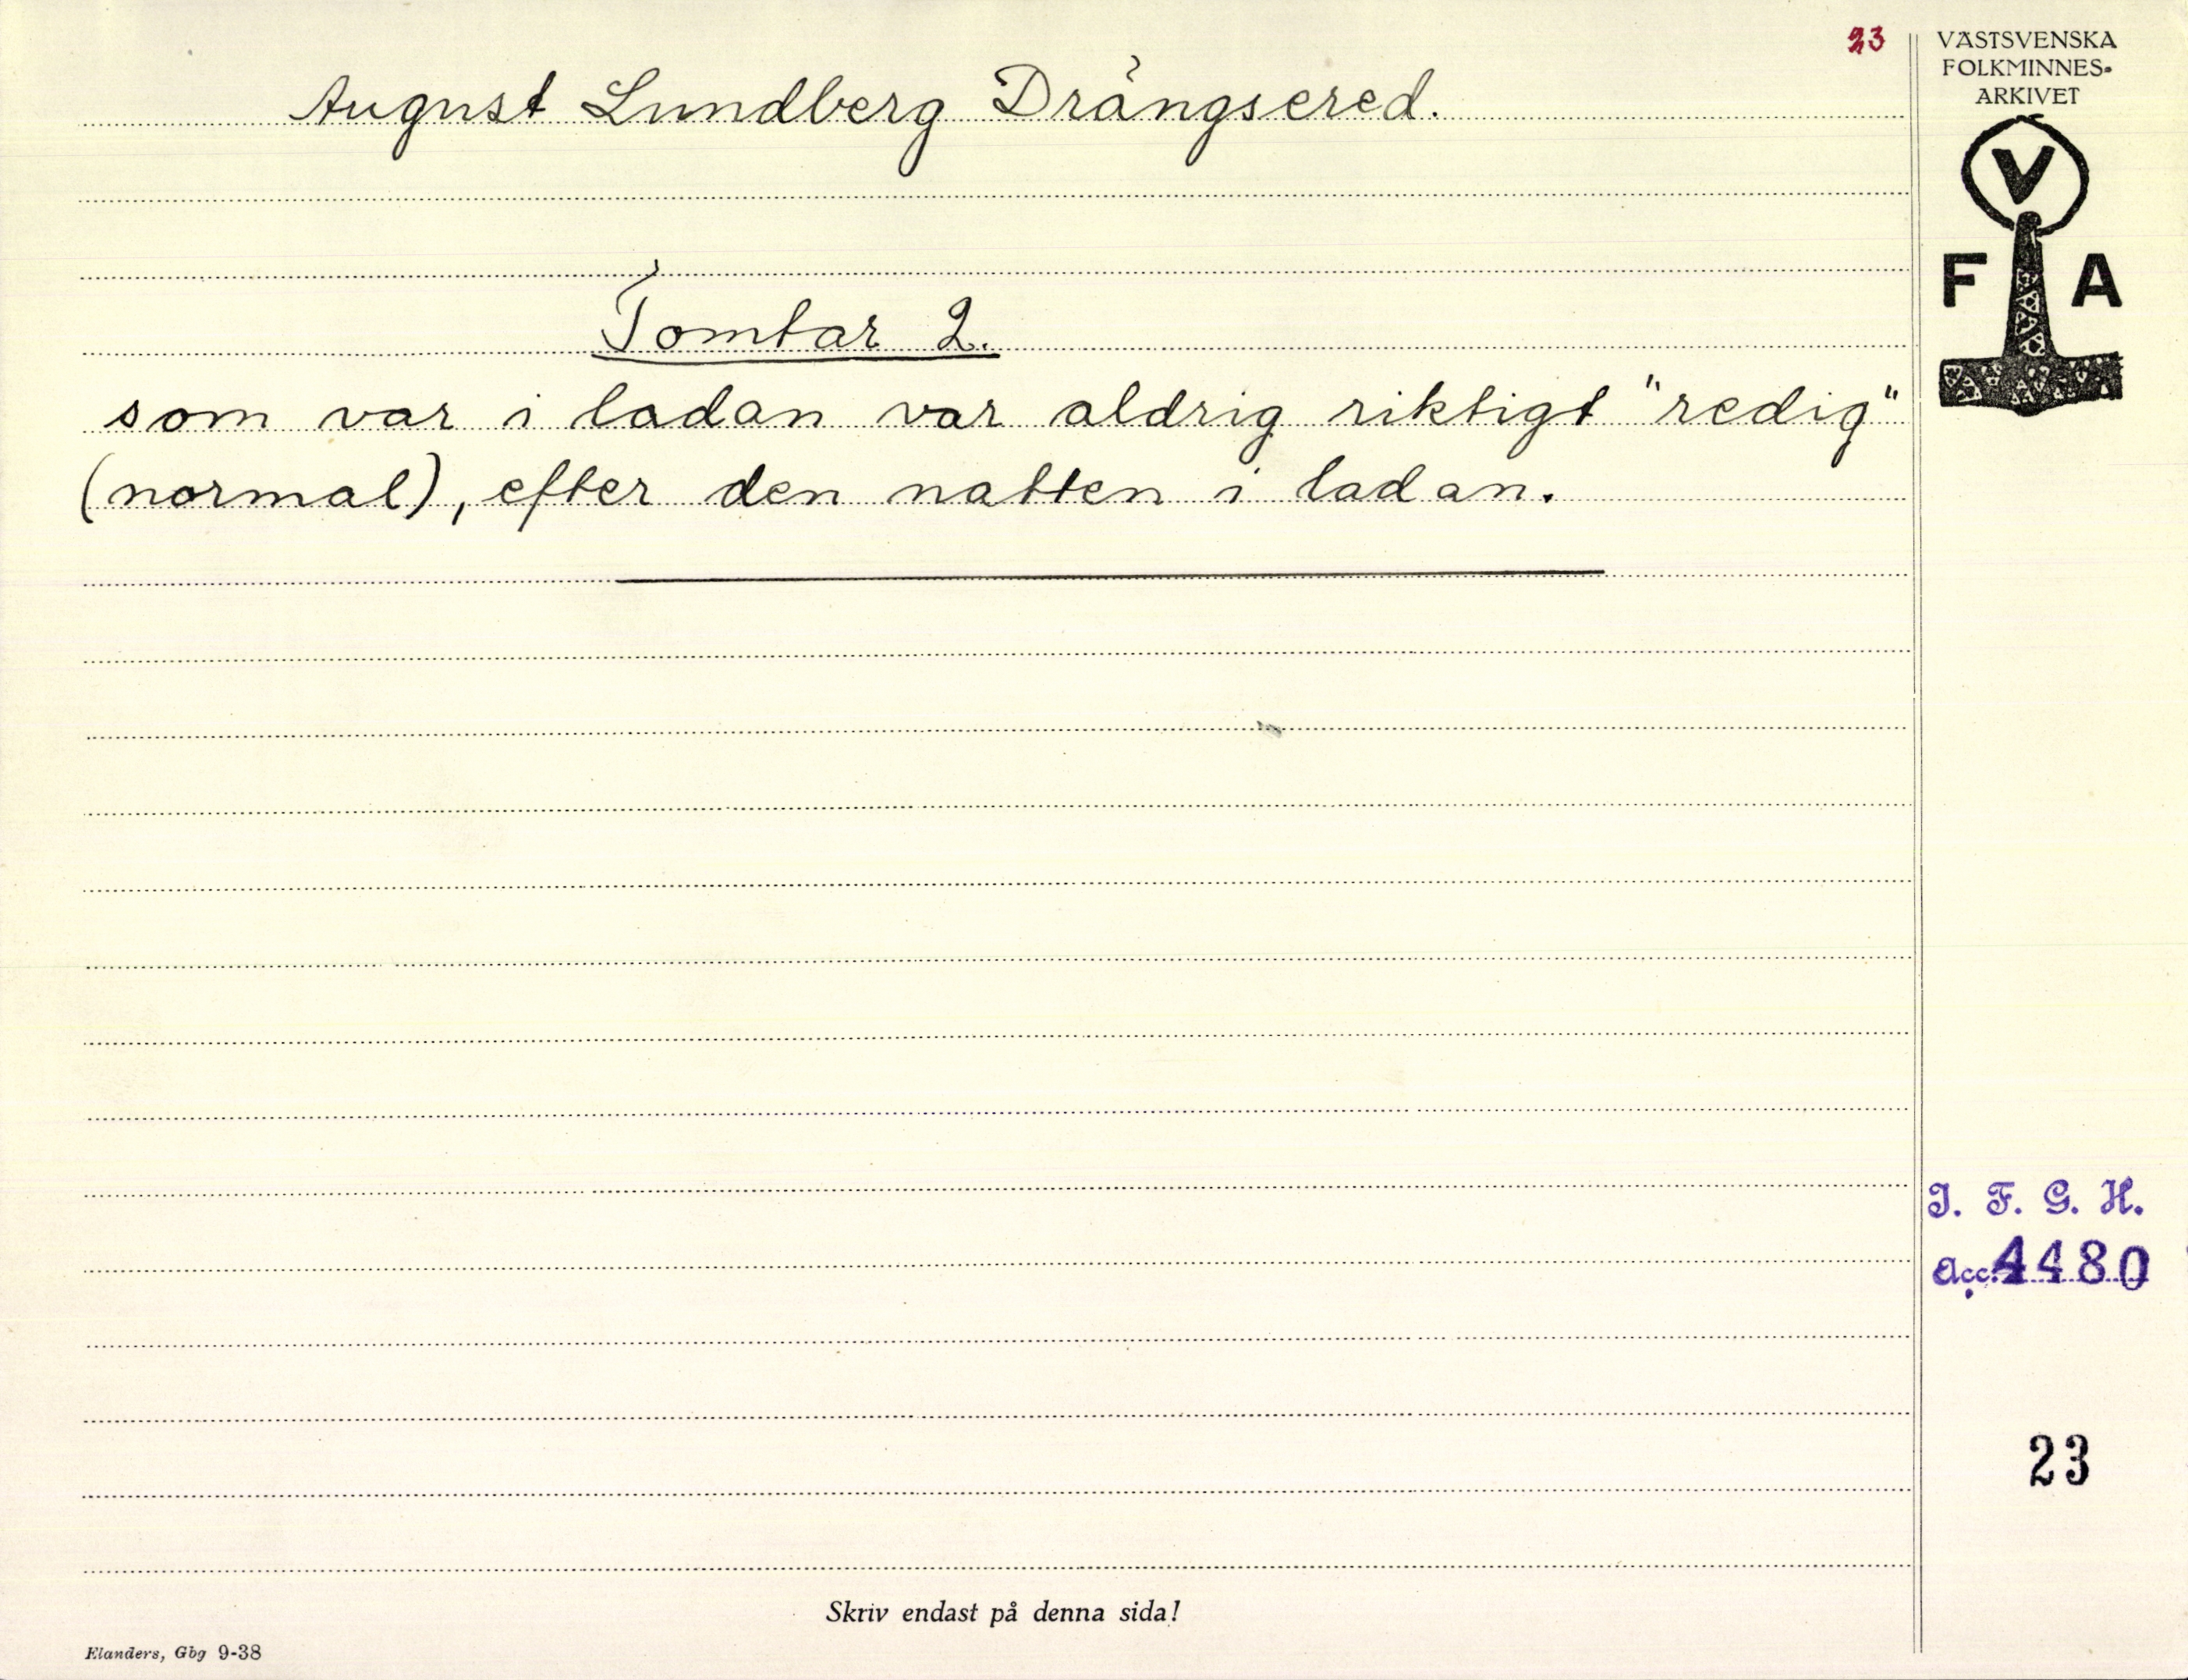 23
August Lundberg Drängsered.
Tomtar 2.
som var i ladan var aldrig riktigt "redig"
(normal), efter den natten i ladan.
VÄSTSVENSKA
FOLKMINNES-
ARKIVET
V
F A
I. F. G. H.
Acc. 4480
23
Skriv endast på denna sida!
Elanders, Gbg 9-38